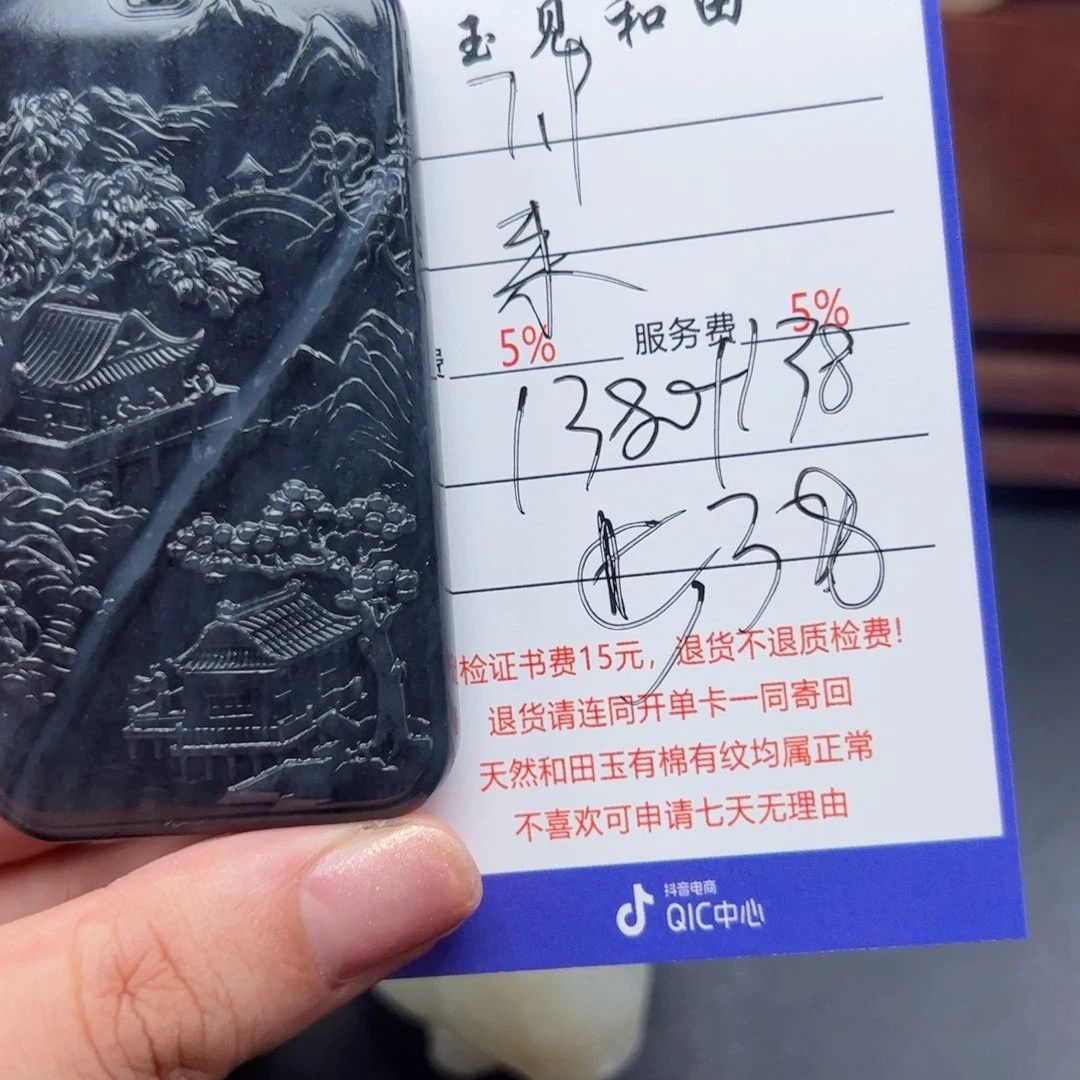 玉见和田
5% 服务费 5%
1380+138
检证书费15元，退货不退质检费!
退货请连同开单卡一同寄回
天然和田玉有棉有纹均属正常
不喜欢可申请七天无理由
抖音电商
QIC中心